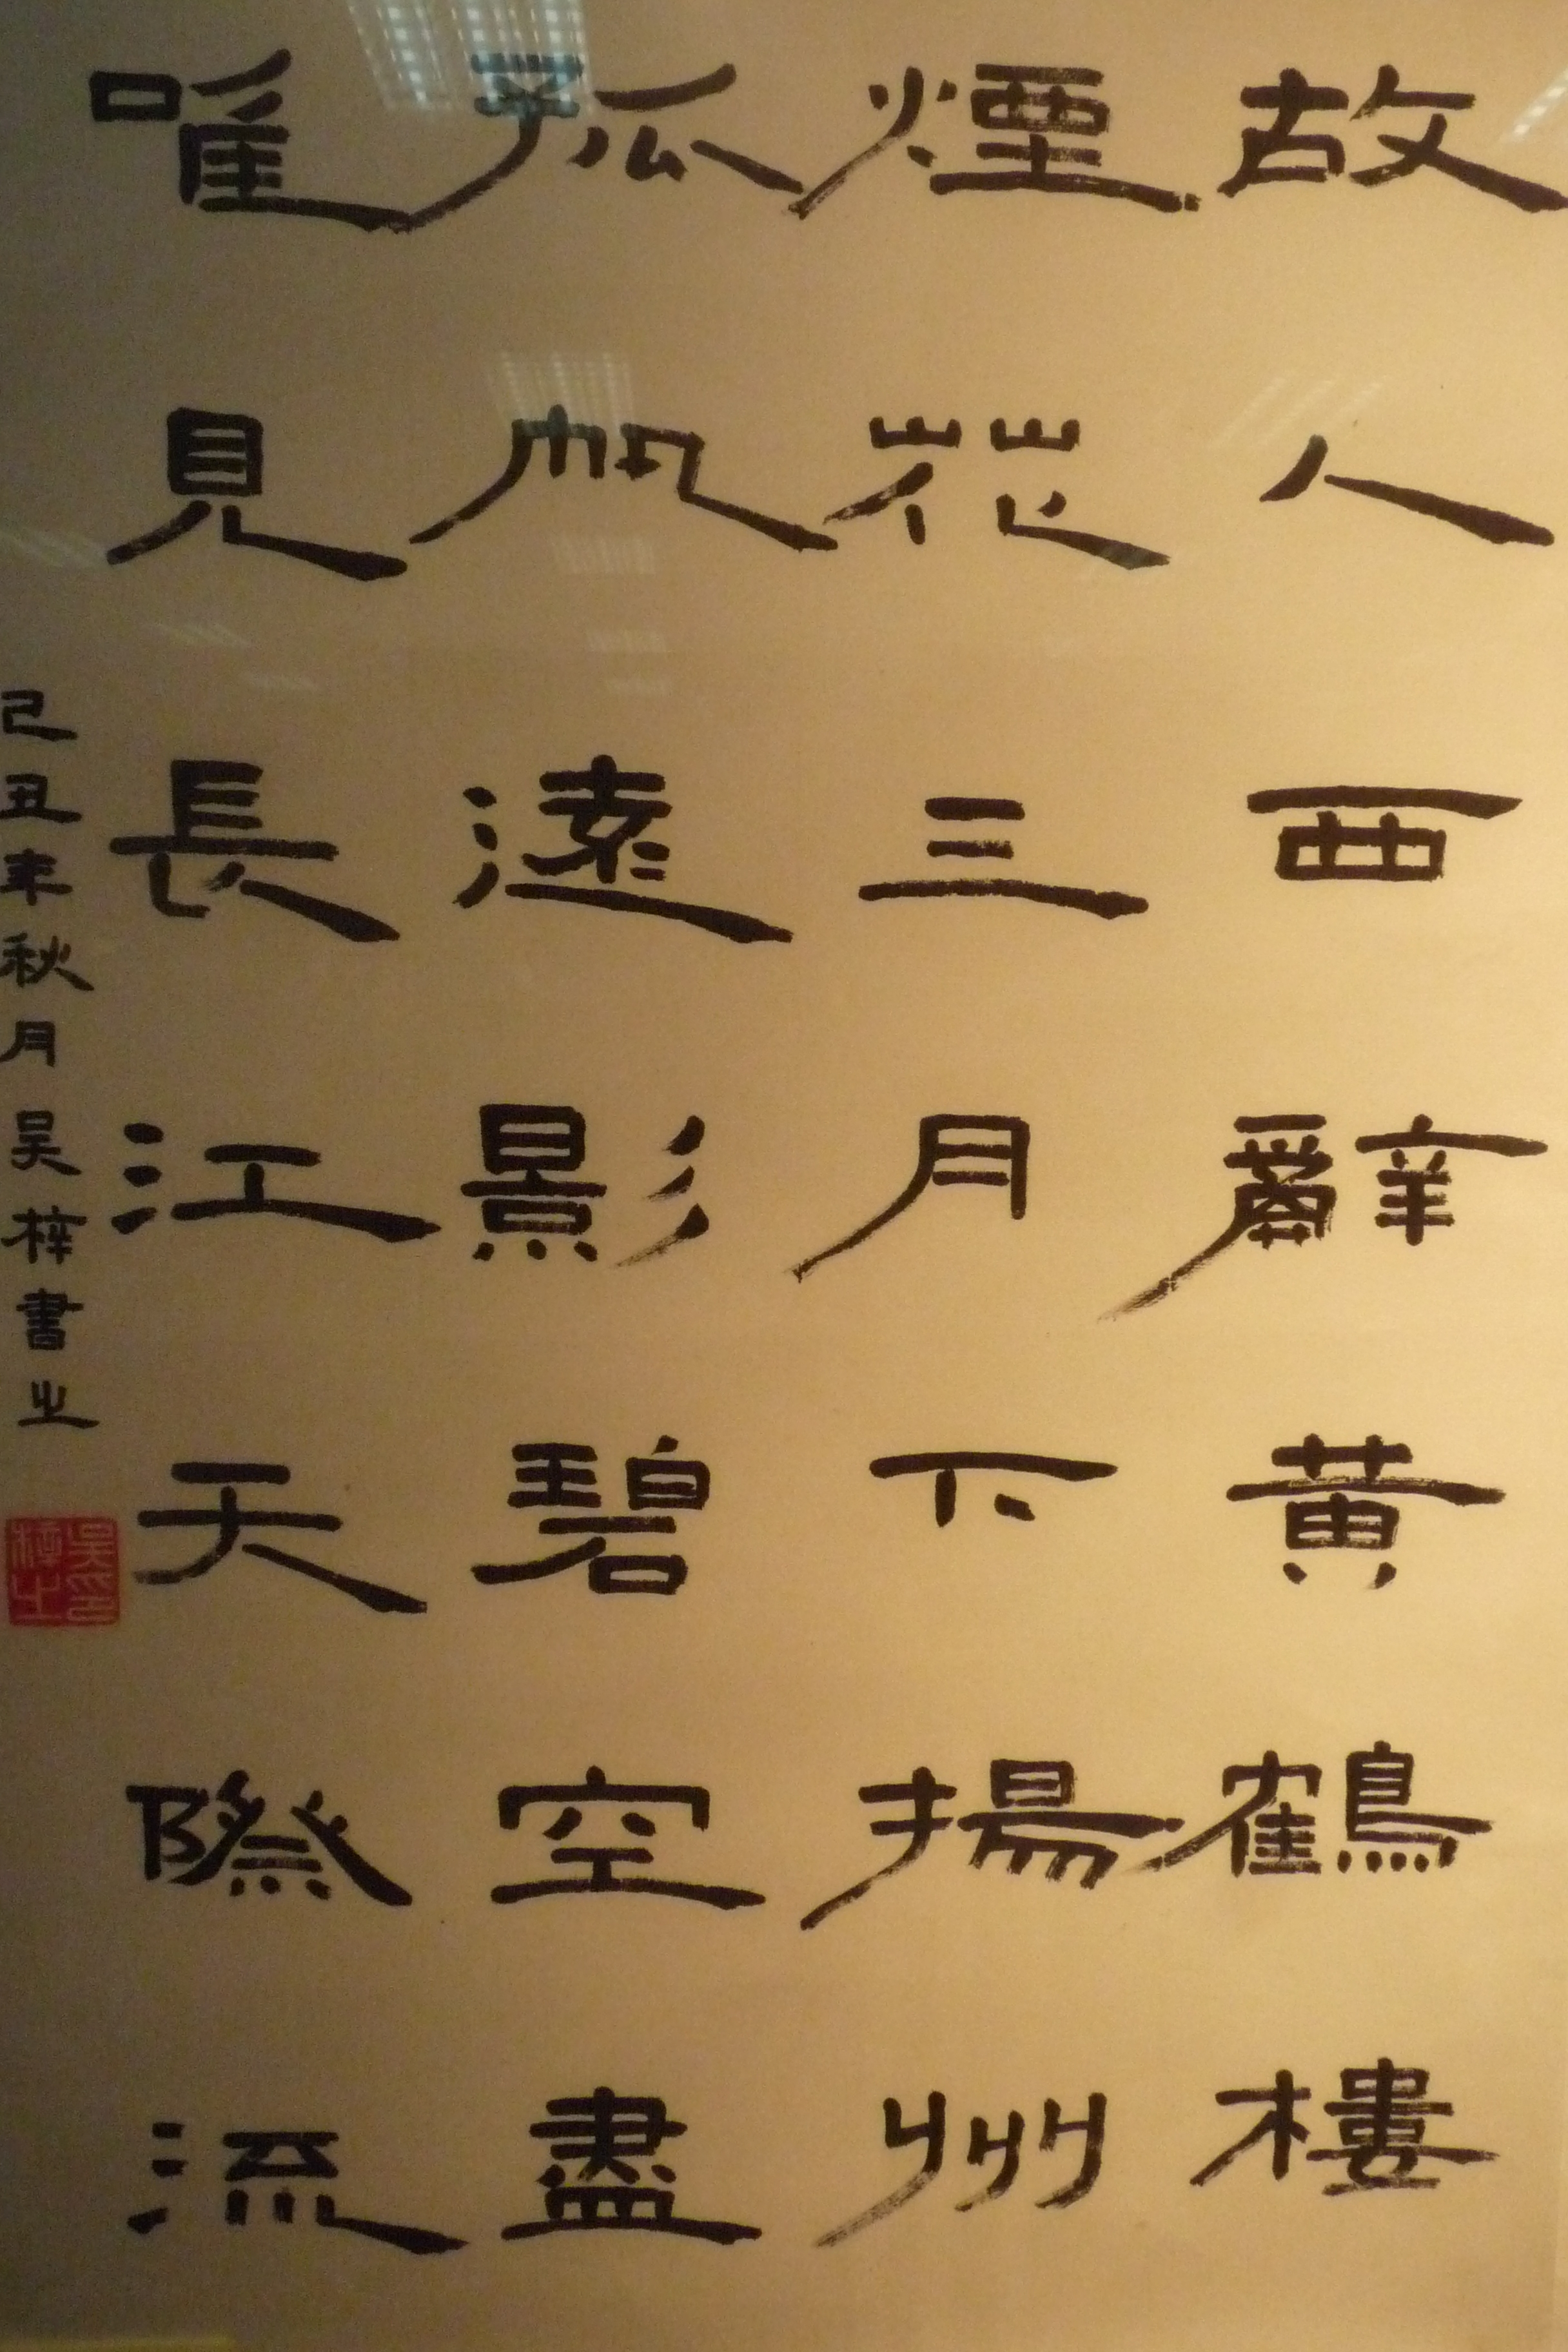 故人西辭黃鶴樓
煙花三月下揚州
孤帆遠影碧空盡
唯見長江天際流
己丑年秋月吳梓書之
吳梓之印